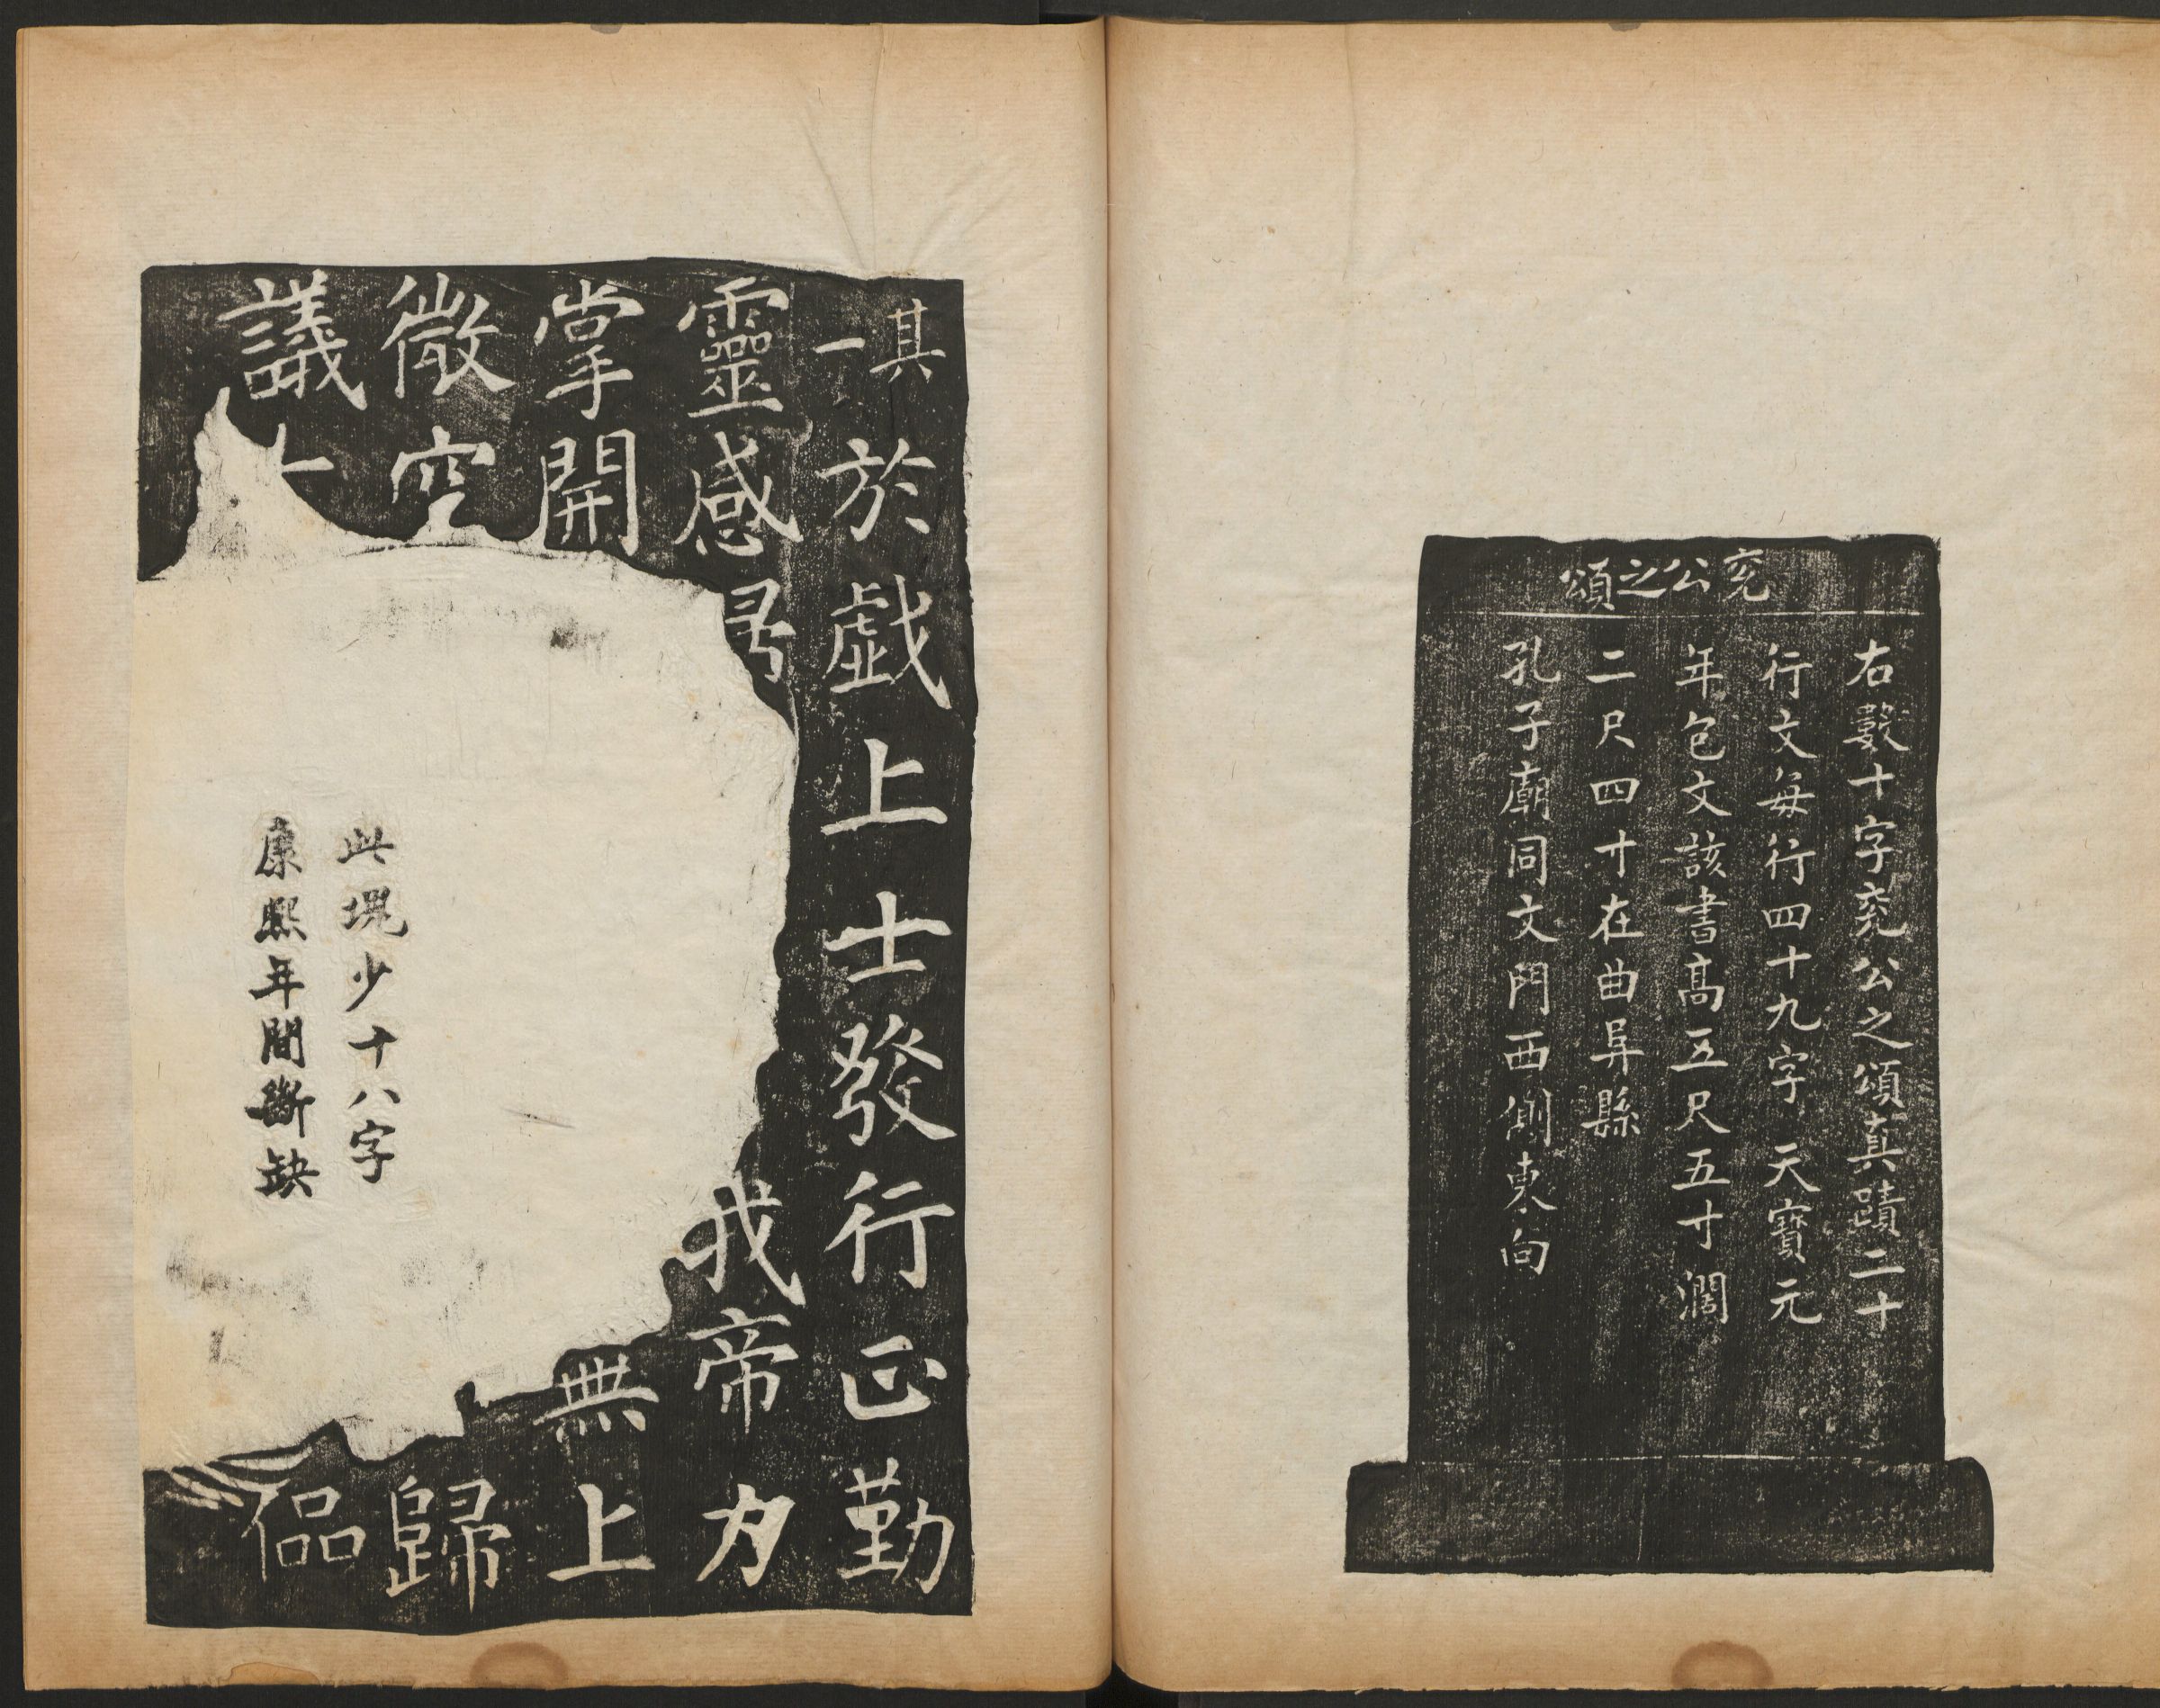 兖公之頌
右數十字兖公之頌真蹟二十
行文每行四十九字天寶元
年包文該書高五尺五寸濶
二尺四寸在曲阜縣
孔子廟同文門西側東向
其一
於戲上士發行正勤
靈感 我帝力
掌開 無上
微空 歸
議
此塊少十八字
康熙年間斷缺